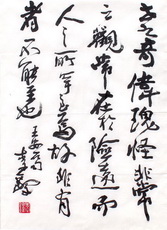 世之奇偉瑰怪非常
之觀常在於險遠而
人之所罕至焉故非有
志者不能至也 王安石句